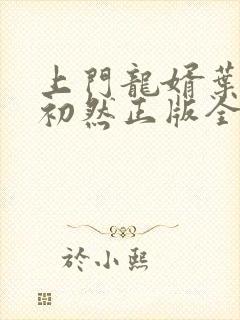 上門龍婿葉
初然正版全
於小熙